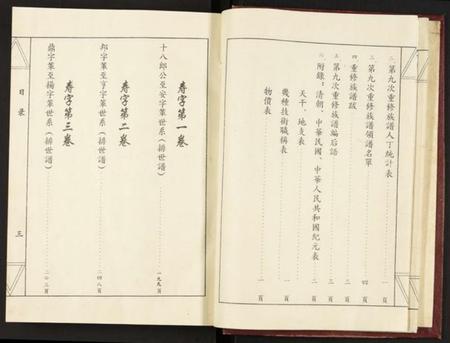 二、第九次重修族譜人丁統計表 一頁
三、第九次重修族譜領譜名單 四頁
四、重修族譜跋 二頁
五、第九次重修族譜編后語 二頁
六、附錄：清朝、中華民國、中華人民共和國紀元表 二頁
天干、地支表 一頁
幾種技術職稱表 一頁
物價表 一頁
壽字第一卷
十八郎公至安字輩世系（排世譜） 一九九頁
壽字第二卷
邦字輩至亨字輩世系（排世譜） 二四八頁
壽字第三卷
鼎字輩至揚字輩世系（排世譜） 二〇三頁
目录
三